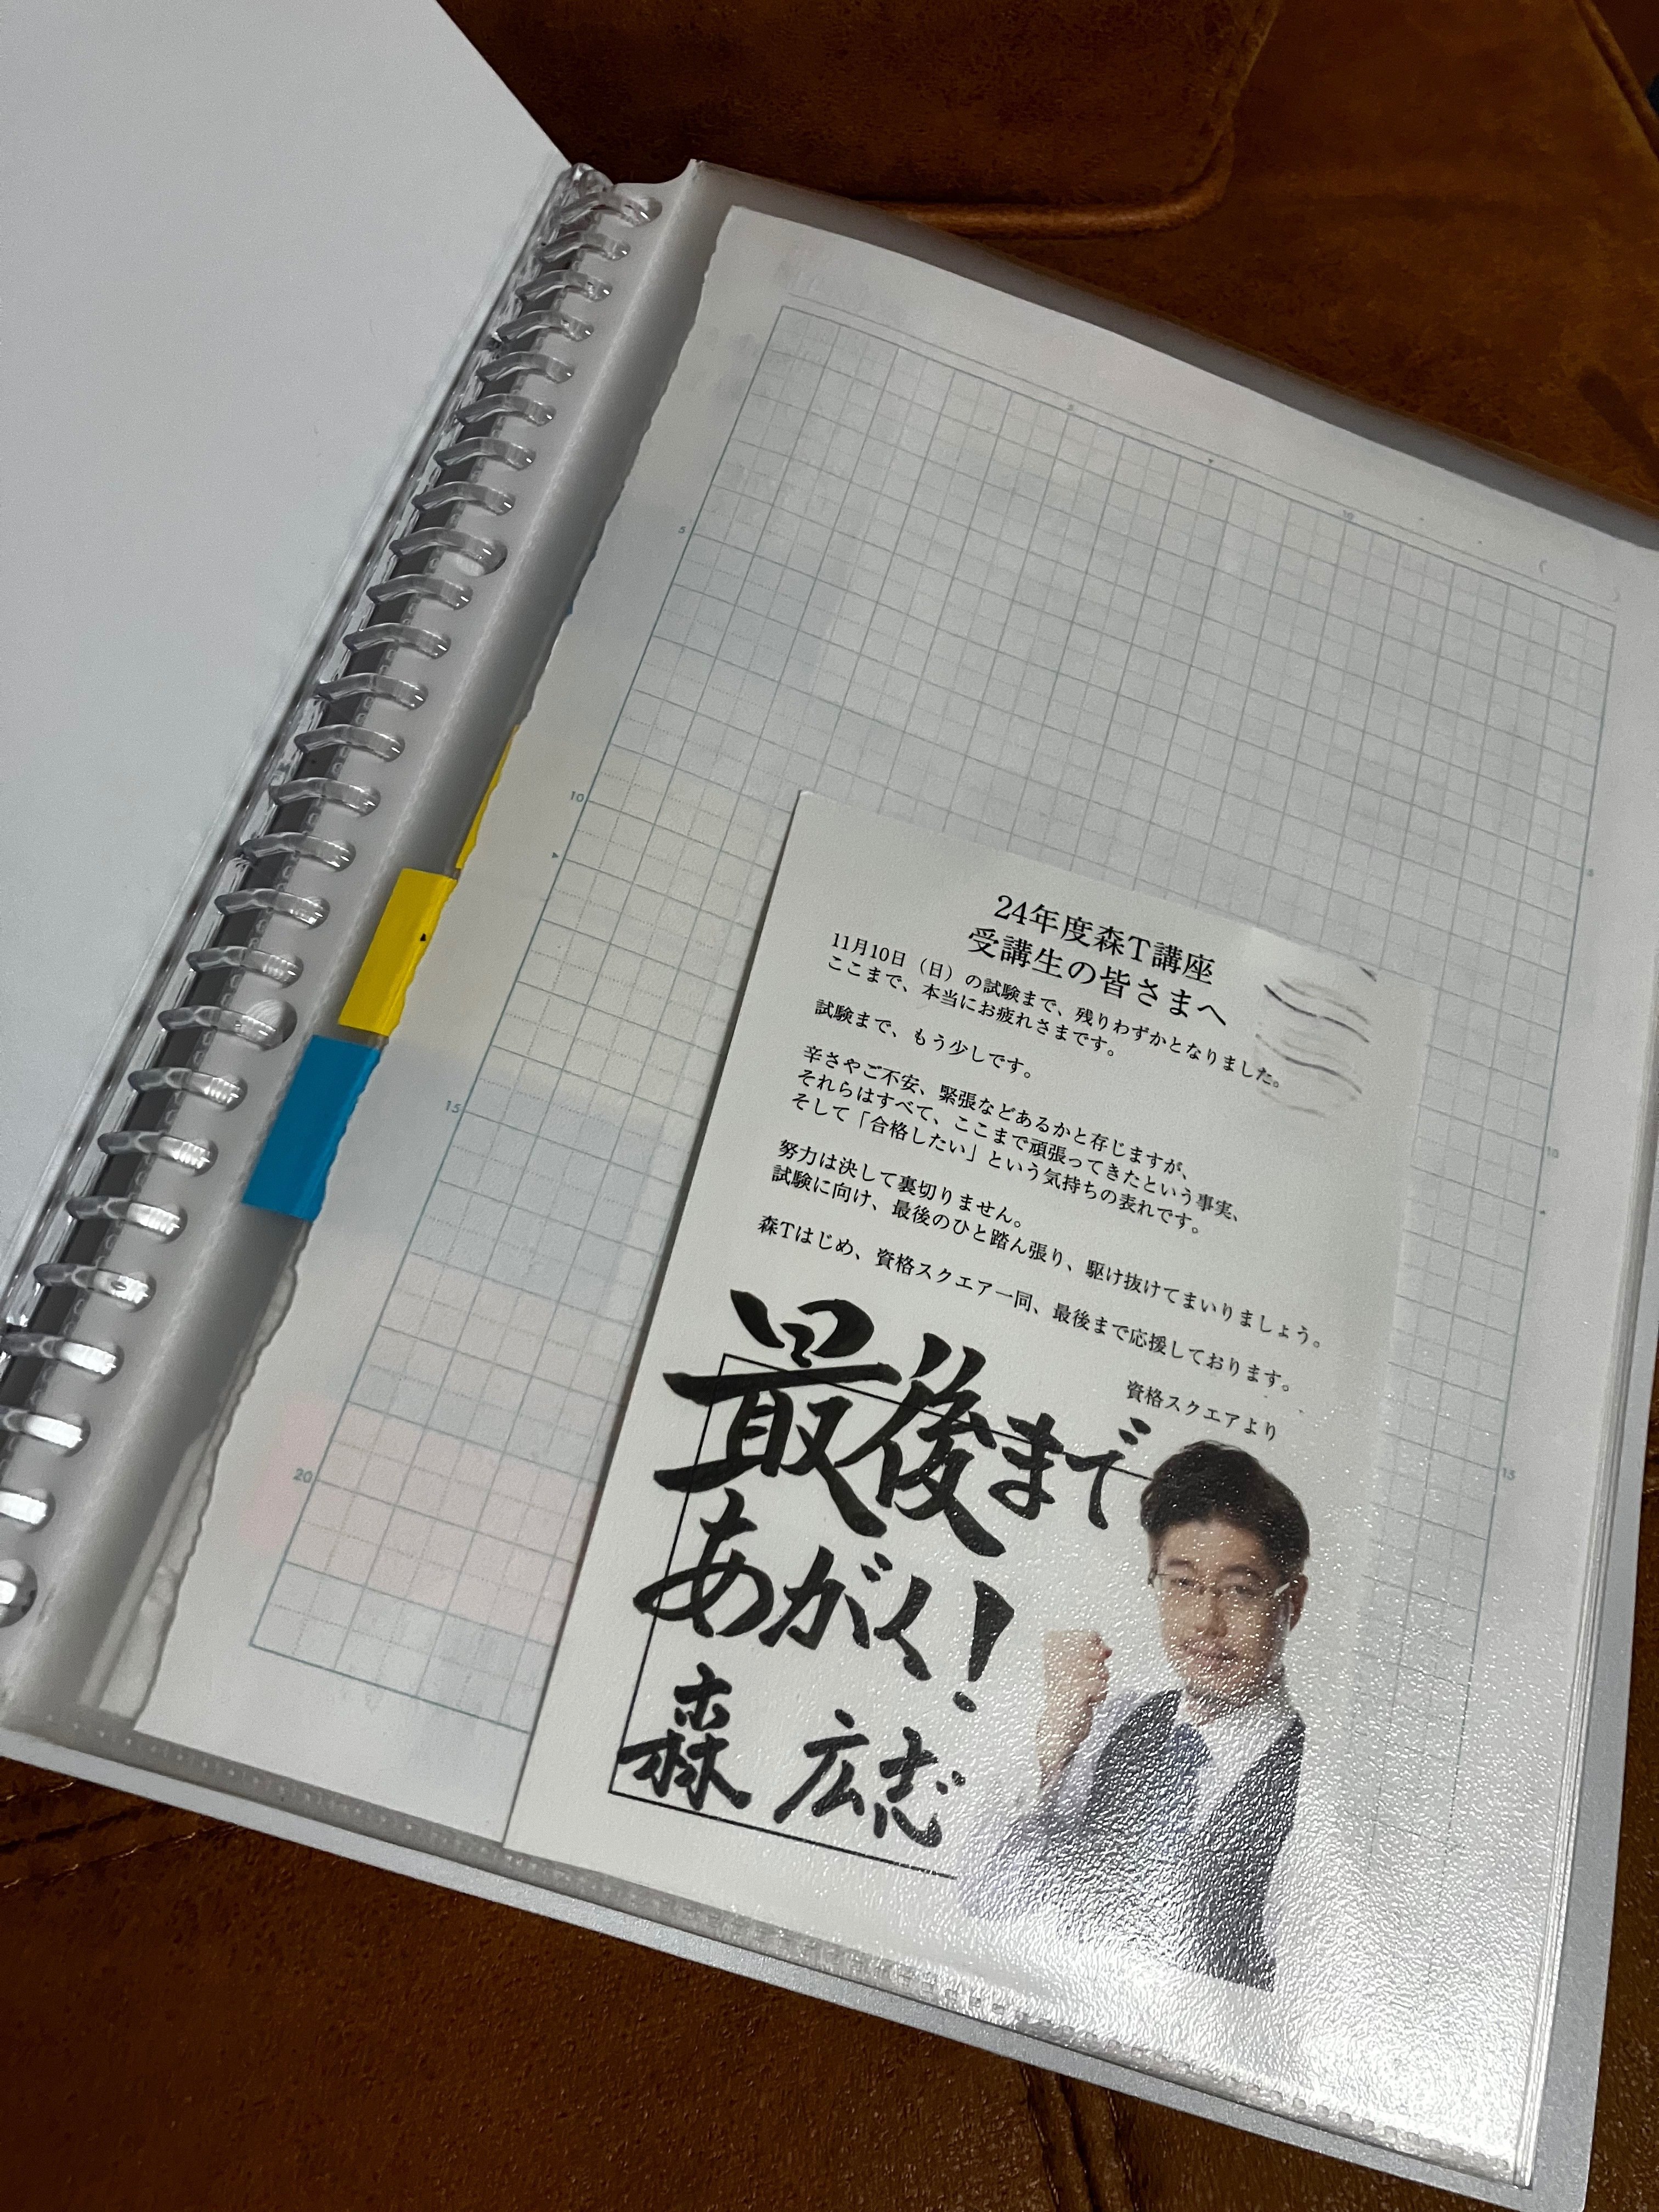 24年度森T講座
受講生の皆さまへ
11月10日（日）の試験まで、残りわずかとなりました。
ここまで、本当にお疲れさまです。
試験まで、もう少しです。
辛さやご不安、緊張などあるかと存じますが、
それらはすべて、ここまで頑張ってきたという事実、
そして「合格したい」という気持ちの表れです。
努力は決して裏切りません。
試験に向け、最後のひと踏ん張り、駆け抜けてまいりましょう。
森Tはじめ、資格スクエア一同、最後まで応援しております。
資格スクエアより
最後まで
あがく！
森 広志
5
10
15
20
5
10
5
10
15